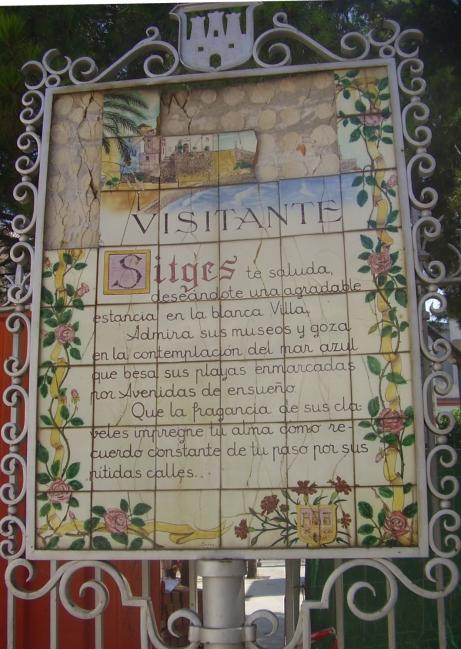 VISITANTE
Sitges te saluda,
deseándote una agradable
estancia en la blanca Villa.
Admira sus museos y goza
en la contemplación del mar azul
que besa sus playas enmarcadas
por Avenidas de ensueño
Que la fragancia de sus cla-
veles impregne tu alma como re-
cuerdo constante de tu paso por sus
nítidas calles..